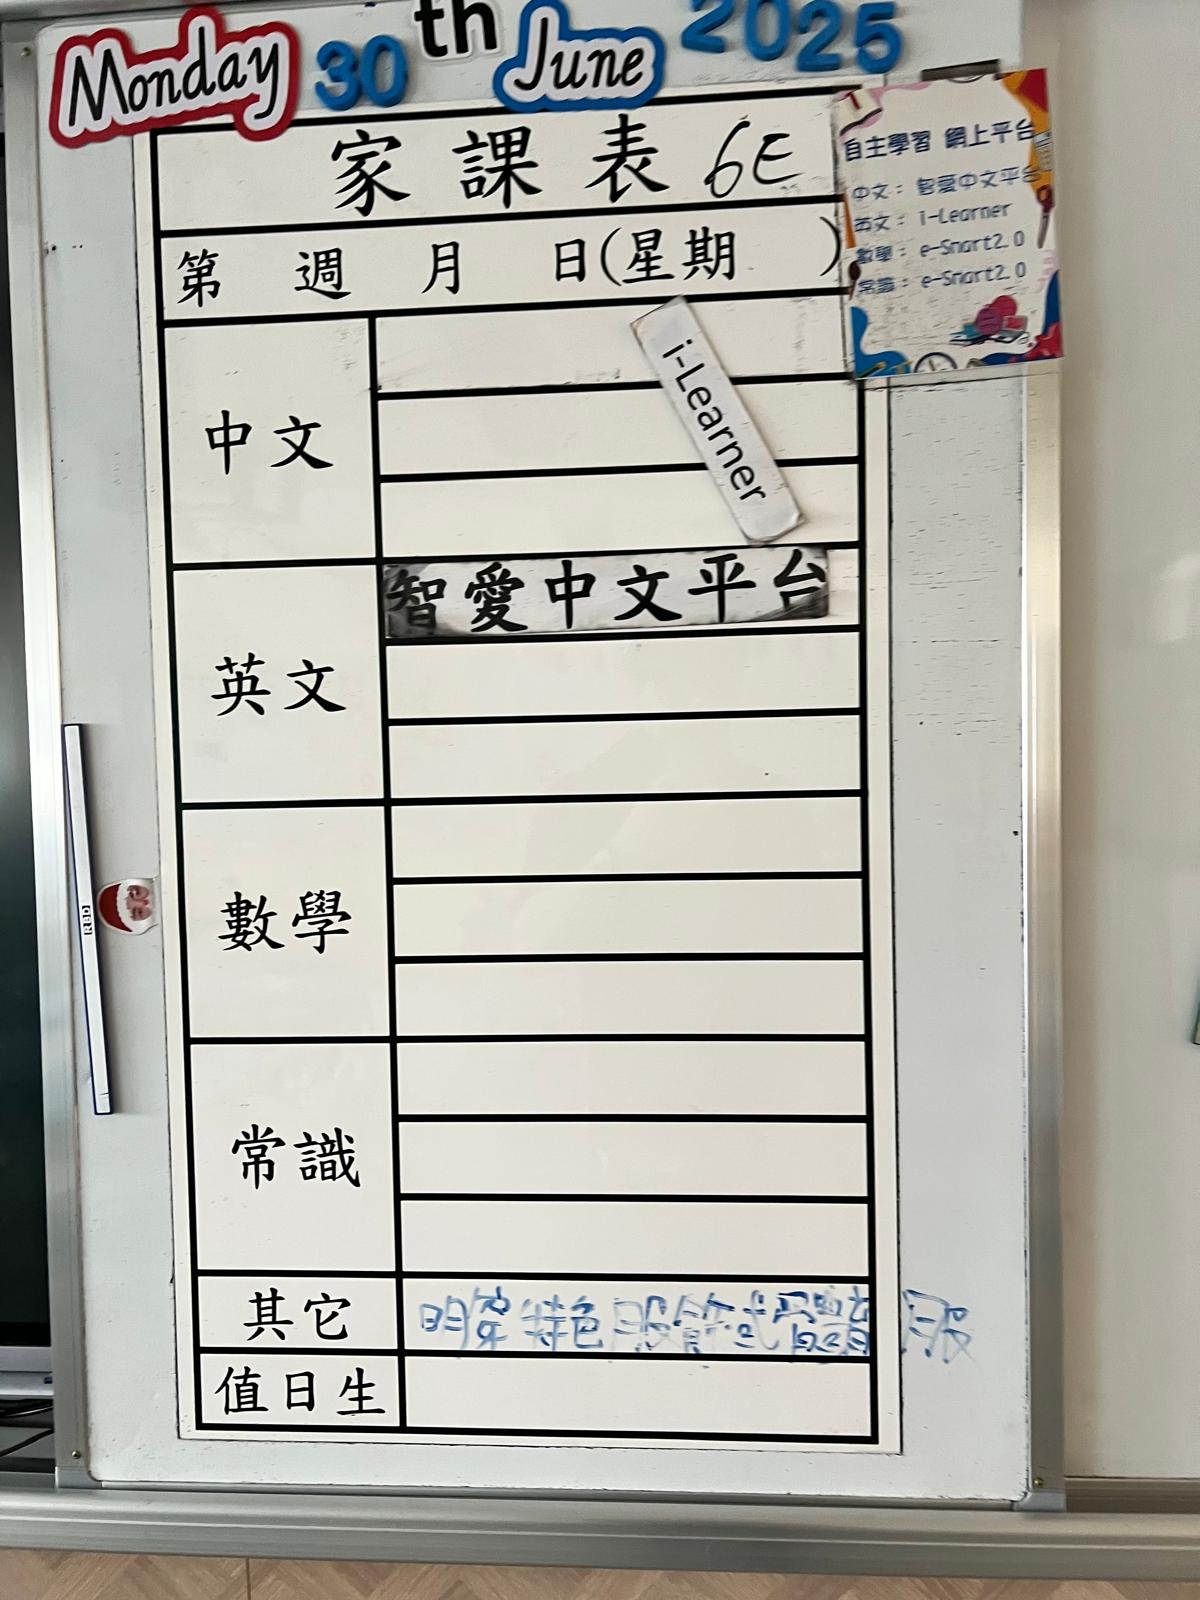 Monday 30th June 2025
家課表 6E
第 週 月 日(星期 )
自主學習 網上平台
中文：智愛中文平台
英文：i-Learner
數學：e-Smart2.0
常識：e-Smart2.0
中文
i-Learner
智愛中文平台
英文
數學
RED
常識
其它 明穿特色服飾或體育服
值日生